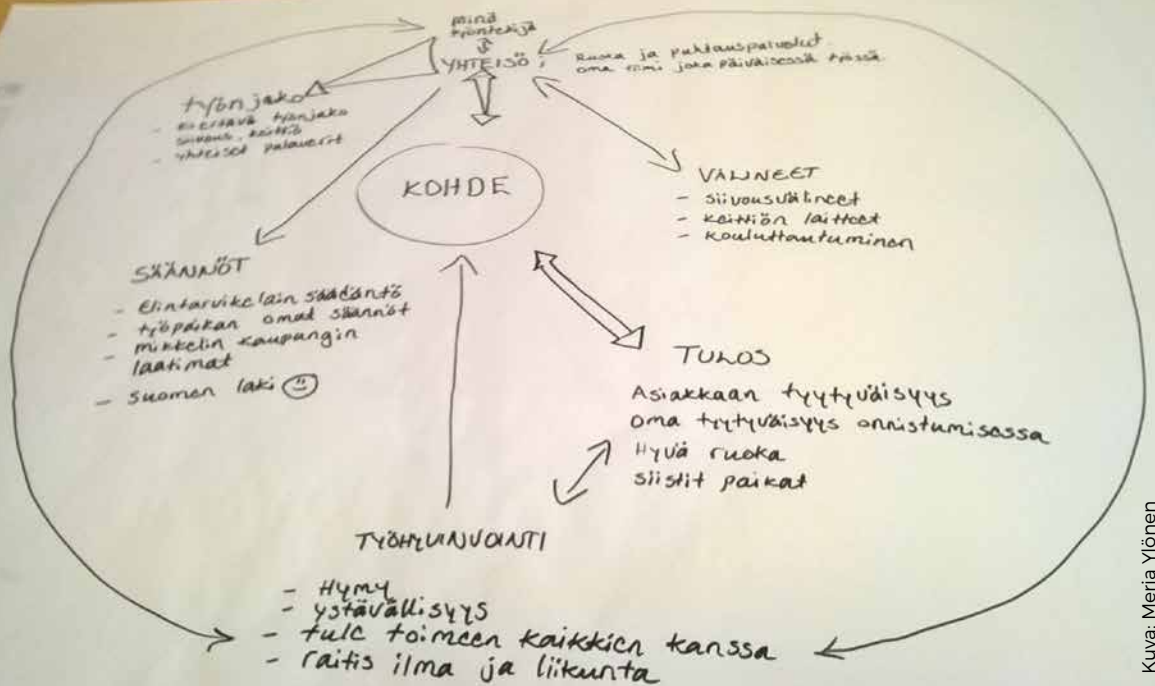 minä
työntekijä
YHTEISÖ;
Ruoka ja puhtauspalvelut.
oma tiimi joka päiväisessä työssä
työnjako
- kiertävä työnjako
siivous, keittiö
- yhteiset palaverit
KOHDE
VÄLINEET
- siivousvälineet
- keittiön laitteet
- kouluttautuminen
SÄÄNNÖT
- Elintarvikelain säädäntö
- työpaikan omat säännöt
- mikkelin kaupungin
laatimat
- Suomen laki
TULOS
Asiakkaan tyytyväisyys
oma tyytyväisyys onnistumisessa
Hyvä ruoka
siistit paikat
TYÖHYVINVOINTI
- Hymy
- ystävällisyys
- tule toimeen kaikkien kanssa
- raitis ilma ja liikunta
Kuva: Merja Ylönen